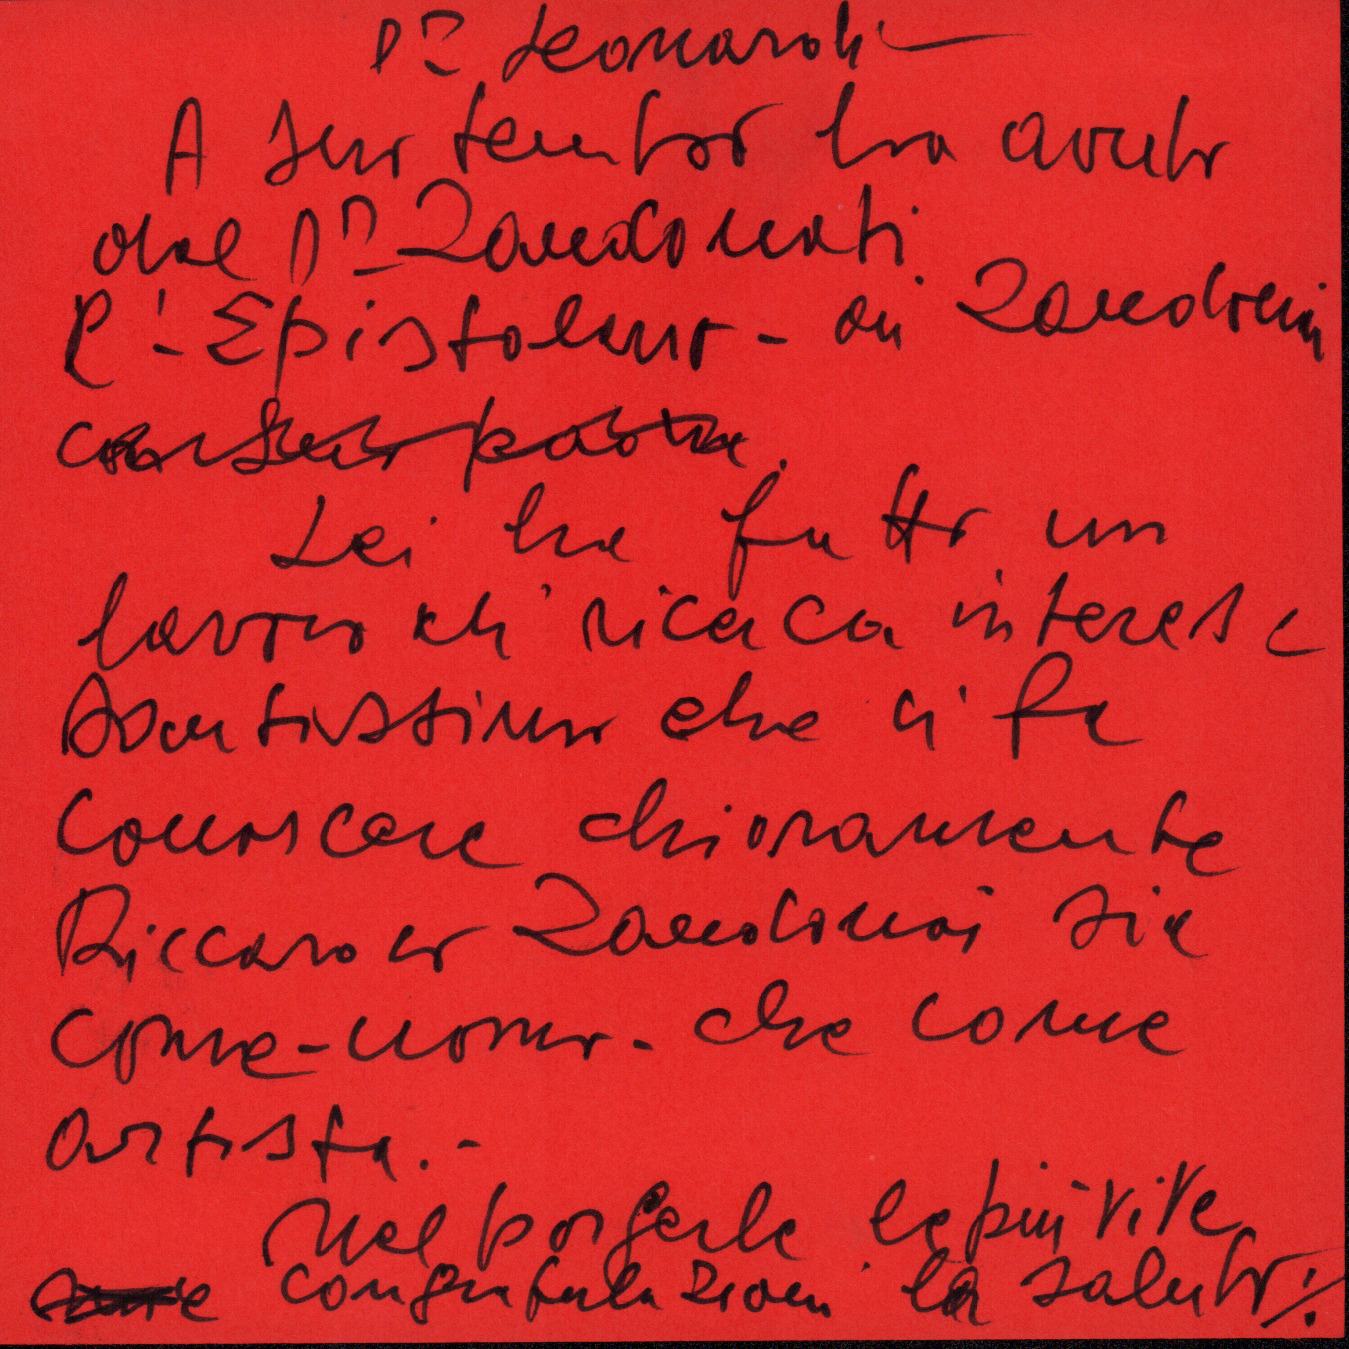 Dr Leonardi
A suo tempo ho avuto
dal Dr Zandonati
l'-Epistolario - di Zandonai
Lei ha fatto un
lavoro di ricerca interes
santissimo che ci fa
conoscere chiaramente
Riccardo Zandonai sia
come-uomo-che come
artista.-
Nel porgerle le più vive
congratulazioni la saluto